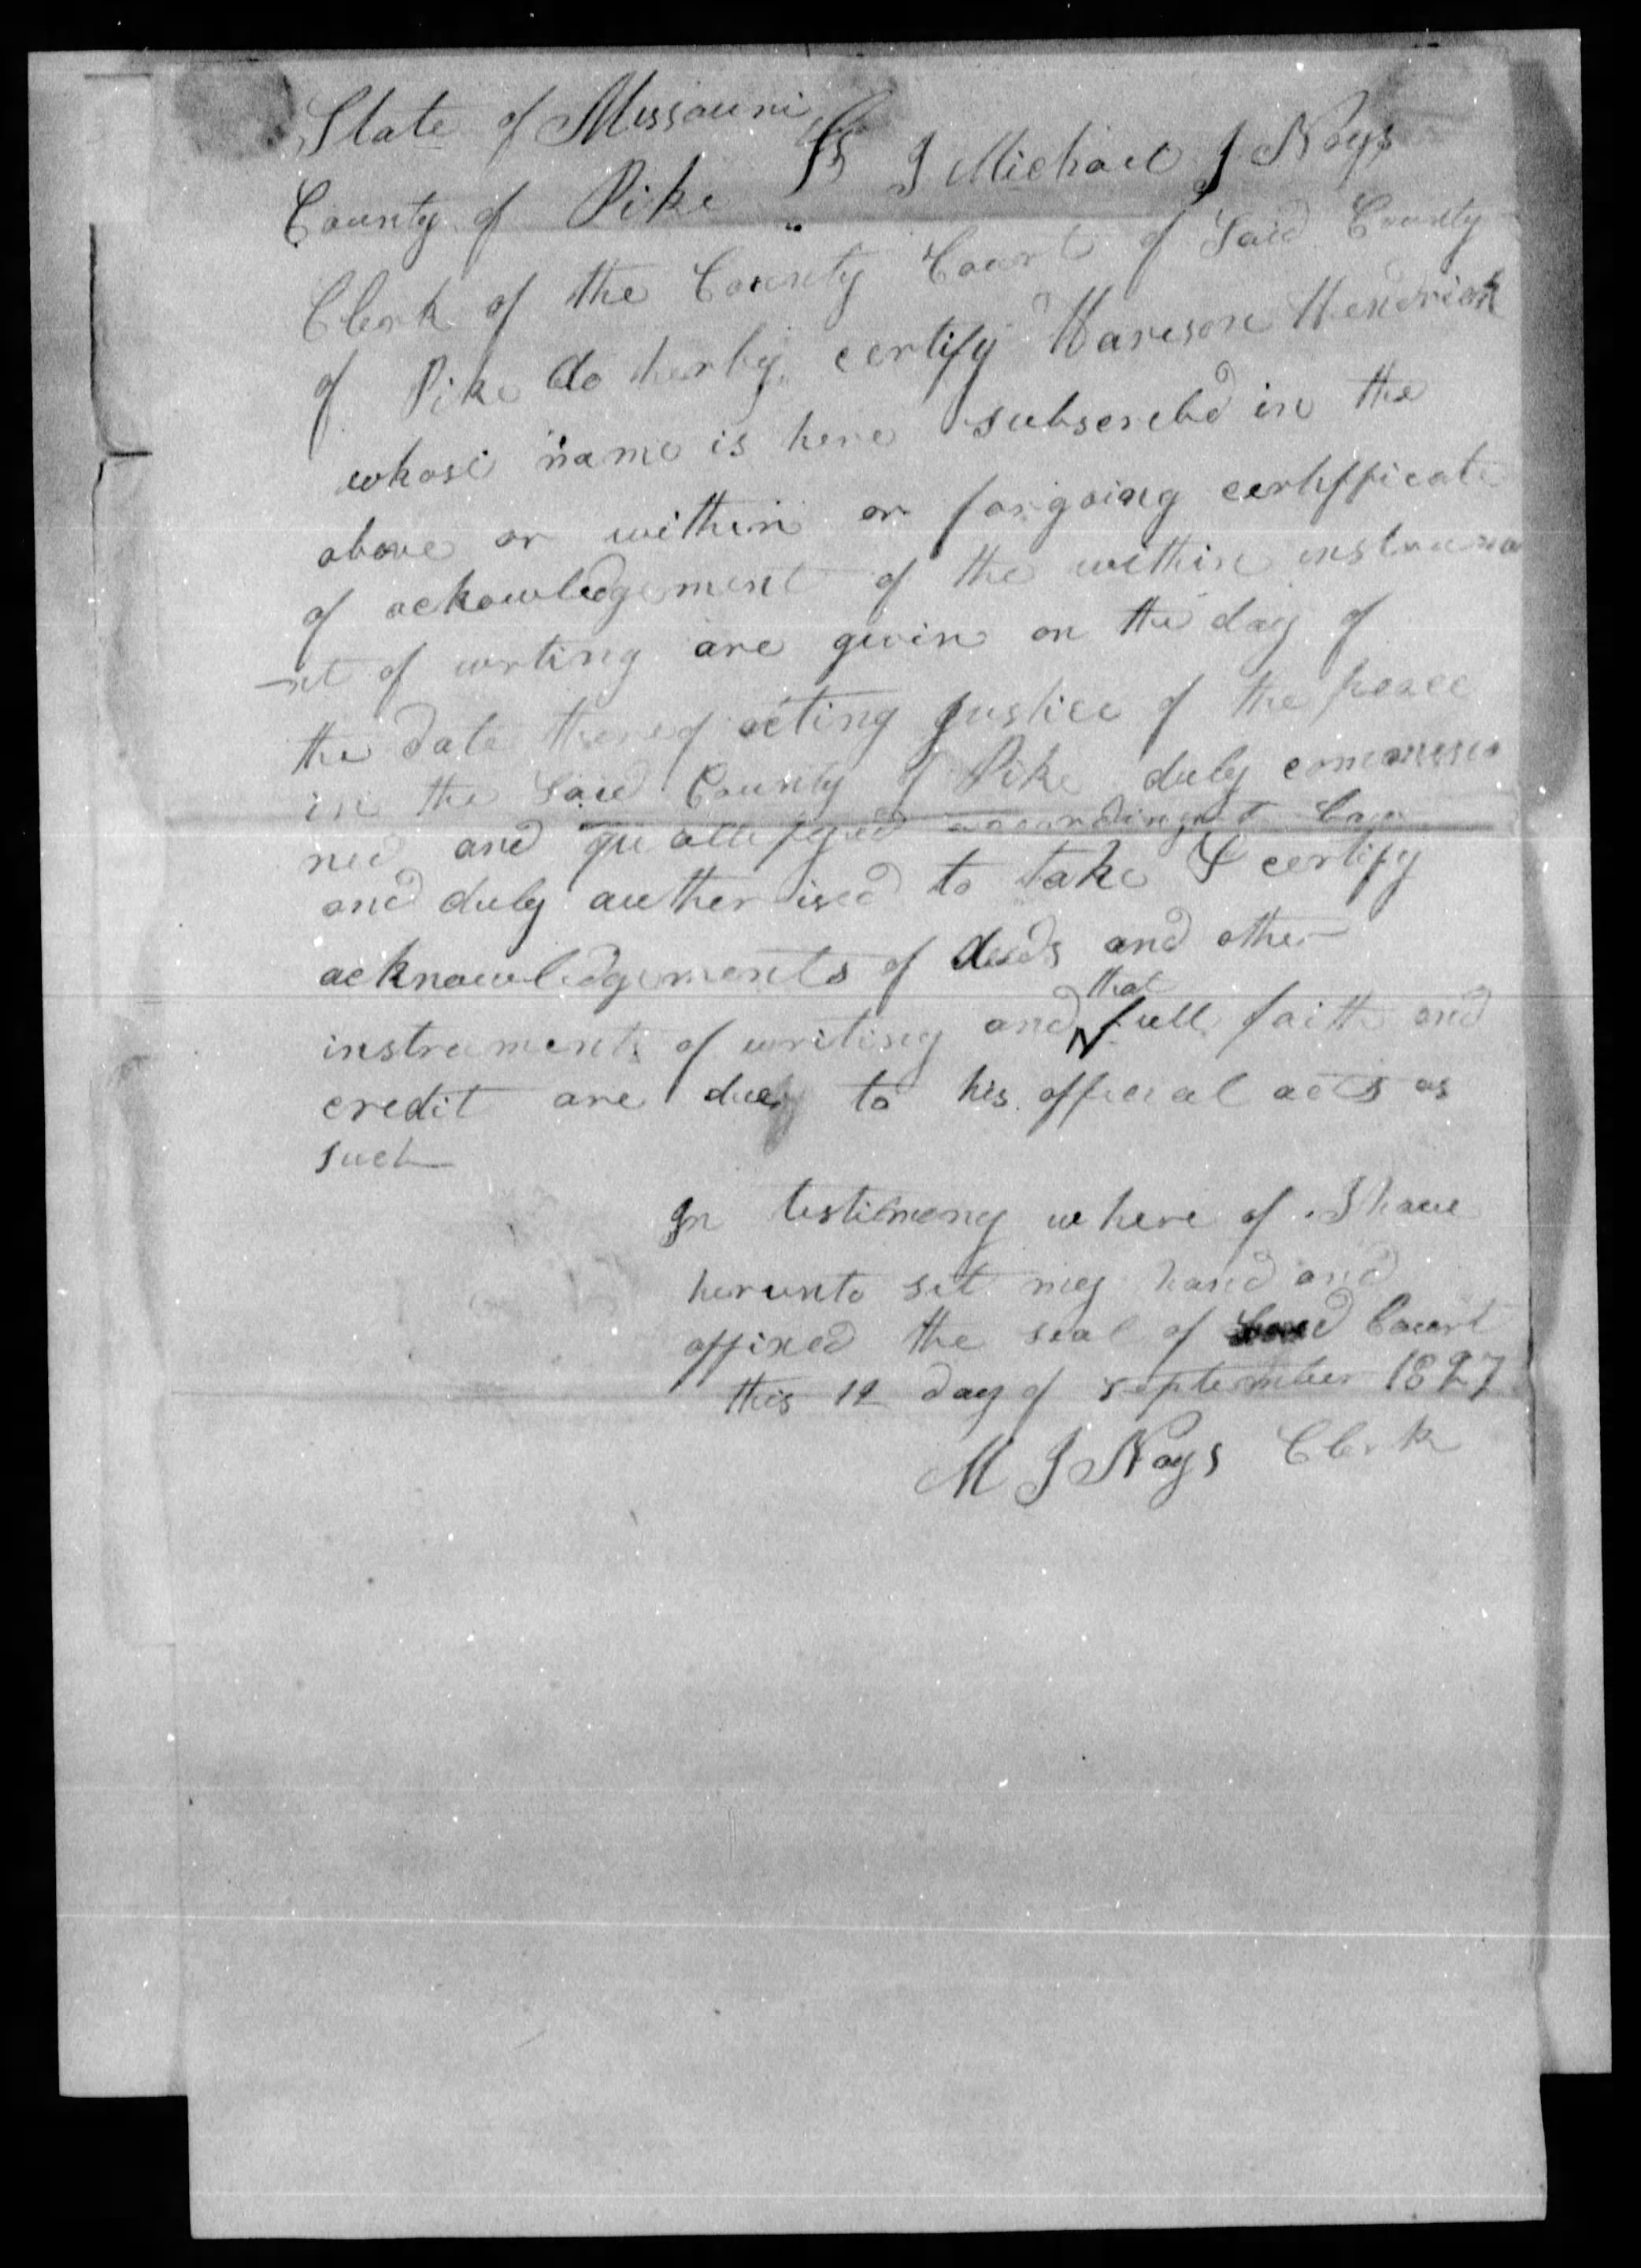 State of Missouri
County of Pike SS I Michael J Noys
Clerk of the County Court of Said County
of Pike do herby certify Harison Hendrick
whose name is here subscribd in the
above or within or forgoing certifficate
of ackowledgement of the within instrume
-nt of wrting are givin on the day of
the date thereof acting Justice of the peace
in the Said County of Pike duly commissio
ned and quallifyed according to Law
and duly autherised to take & certify
acknowledgements of deeds and other
instruments of writing and that full faith and
credit are due to his official acts as
such
In testimony where of I have
herunto set my hand and
affixed the seal of Said Court
this 12 day of september 1827
M J Noys Clerk